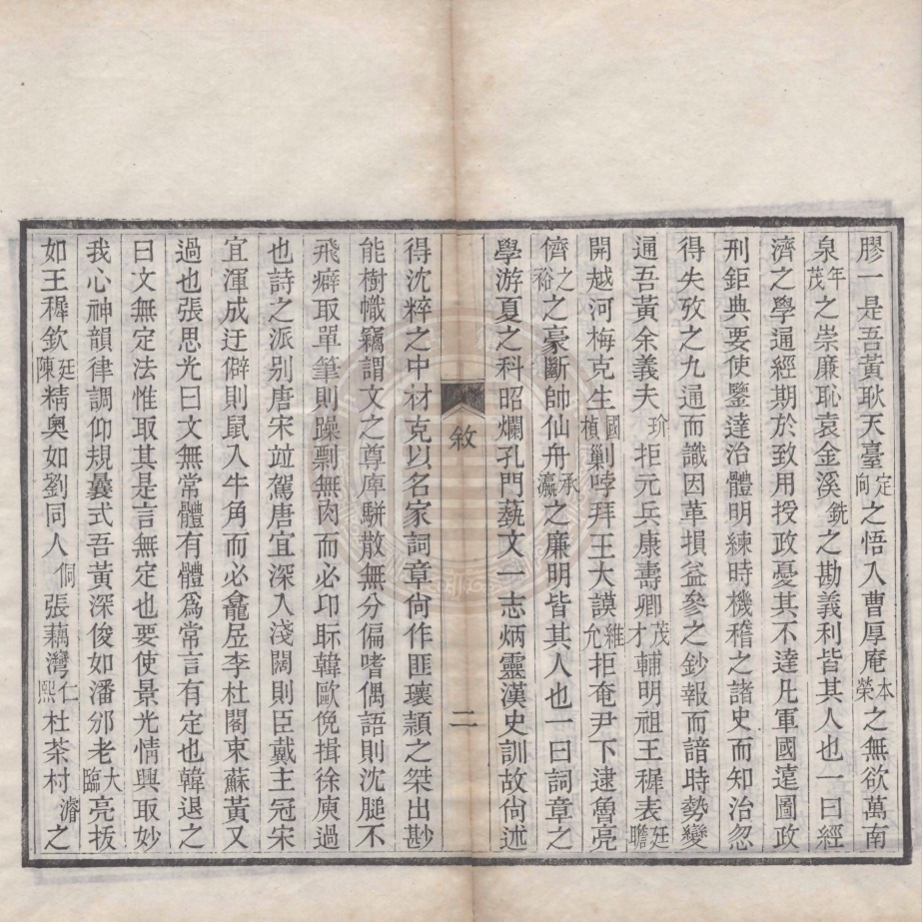 膠一是吾黃耿天臺定向之悟入曹厚庵本榮之無欲萬南
泉年茂之崇廉恥袁金溪銑之勘義利皆其人也一曰經
濟之學通經期於致用授政憂其不達凡軍國遠圖政
刑鉅典要使鑒達治體明練時機稽之諸史而知治忽
得失攷之九通而識因革損益參之鈔報而諳時勢變
通吾黃余義夫玠拒元兵康壽卿茂才輔明祖王穉表廷瞻
開越河梅克生國楨剿哱拜王大謨維允拒奄尹下逮魯亮
儕之裕之豪斷帥仙舟承瀛之廉明皆其人也一曰詞章之
學游夏之科昭爛孔門藝文一志炳靈漢史訓故尙述
敘
二
得沈粹之中材克以名家詞章尙作匪瓌頴之桀出尠
能樹幟竊謂文之尊庳駢散無分偏嗜偶語則沈膇不
飛癖取單筆則躁剽無肉而必卬眎韓歐俛揖徐庾過
也詩之派別唐宋竝駕唐宜深入淺闊則臣戴主冠宋
宜渾成迂僻則鼠入牛角而必龕昃李杜閣束蘇黃又
過也張思光曰文無常體有體爲常言有定也韓退之
曰文無定法惟取其是言無定也要使景光情興取妙
我心神韻律調仰規曩式吾黃深俊如潘邠老大臨亮拔
如王穉欽廷陳精奧如劉同人侗張藕灣仁熙杜茶村濬之